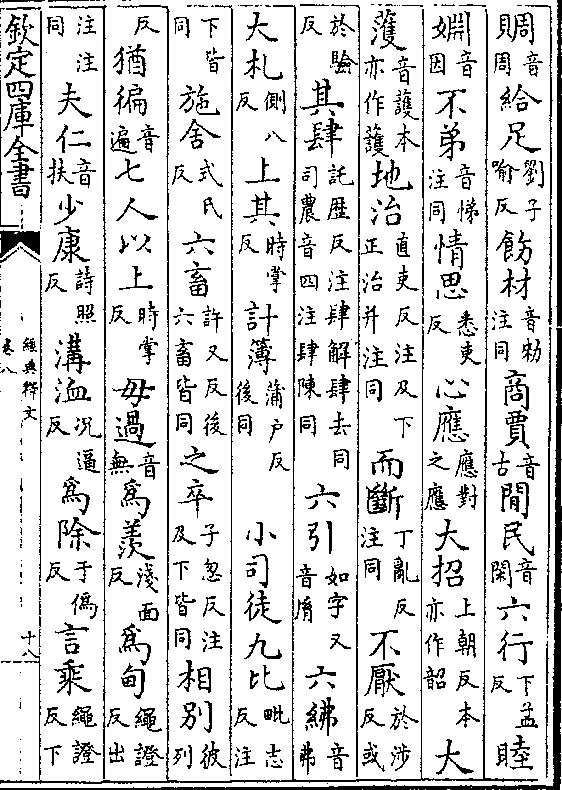 賙音周給足劉子喻反飭材音勑注同商賈音古閒民音閑六行下孟反睦
婣音因不弟音悌注同情思悉吏反心應應對之應大招上朝反本亦作韶大
濩音護本亦作護地治直吏反注及下正治并注同而斷丁亂反注同不厭於涉反或
於驗反其肆託歴反注肆解肆去同司農音四注肆陳同六引如字又音胤六綍音弗
大札側八反上其時掌反計簿蒲戶反後同 小司徒九比毗志反注
下皆同施舍式氏反六畜許又反後六畜皆同之卒子忽反注及下皆同相別彼列
反猶徧音遍七人以上時掌反毋過音無為羡淺面反為甸繩證反出
注注同夫仁音扶少康詩照反溝洫况逼反為除于偽反言乘繩證反下
欽定四庫全書
經典釋文
卷八
十八